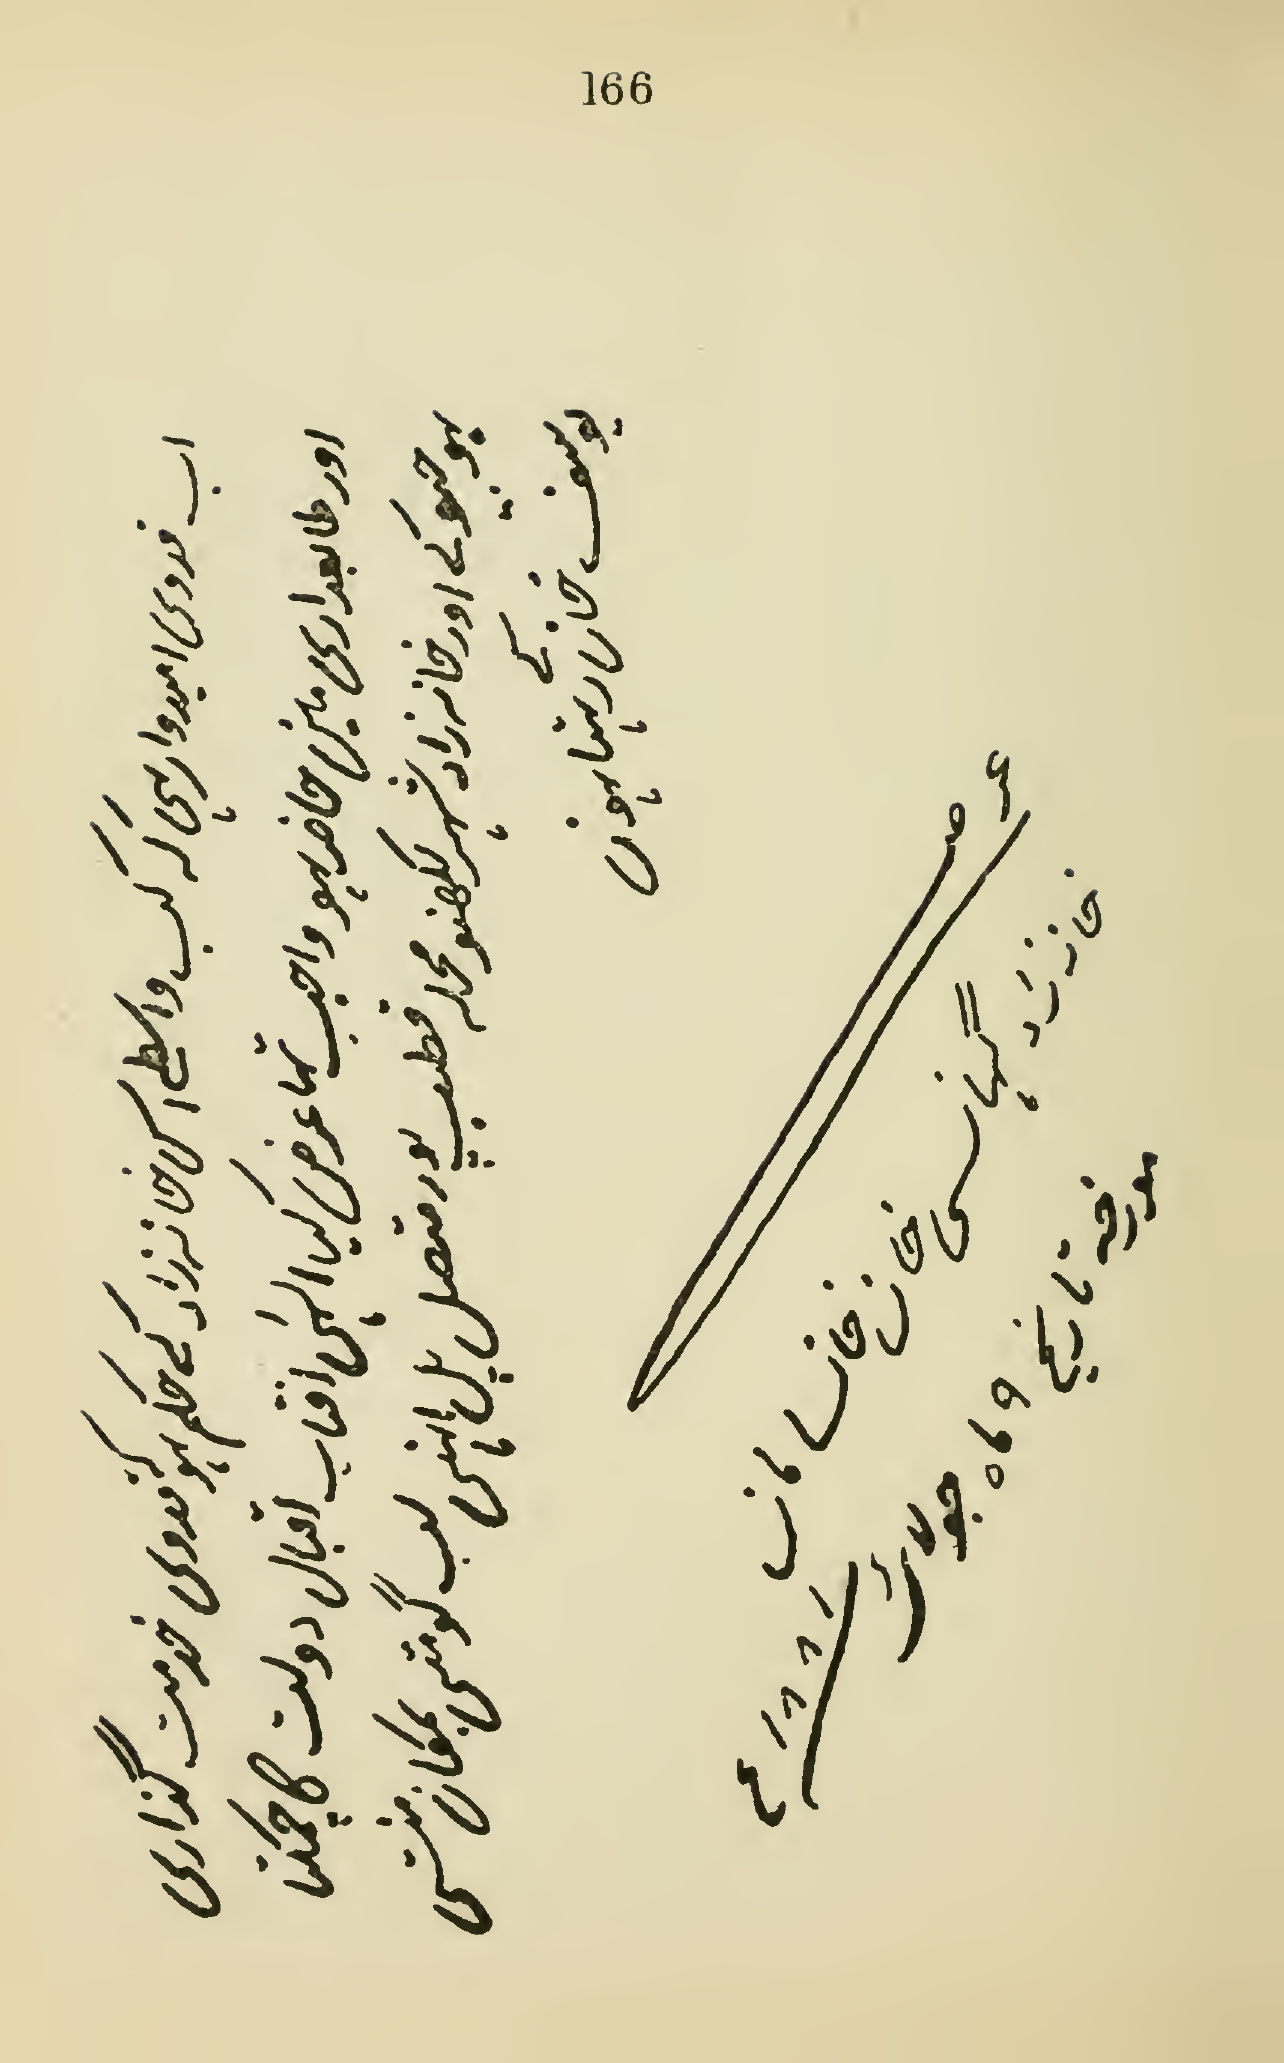 166
اب فدوی امیدوار ہی کہ کب واسطے اس خانہ زاد کے حکم ہو کہ فدوی خدمت گذاری
اور طابعداری مین حاضر ہو واجب تھا عرض کیا الہٰی افتاب اقبال دولت کا چمکتا
پوجیو کے اور خانہ زاد شہر لکھنو محلہ قطب پور متصل پل اہنی لب گومتی بمکان منشی
یوسف خان کے رہتا ہون
عرضے
خانہ زاد خان خانسامان
مورخہ تاریخ ۹ ماہ جولائ ۱۸۸۱ع